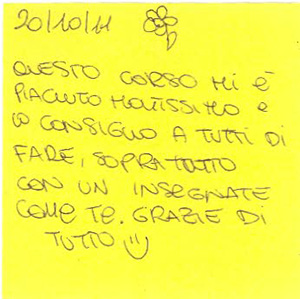 20/10/11
QUESTO CORSO MI È
PIACIUTO MOLTISSIMO E
LO CONSIGLIO A TUTTI DI
FARE, SOPRATTUTTO
CON UN INSEGNATE
COME TE. GRAZIE DI
TUTTO